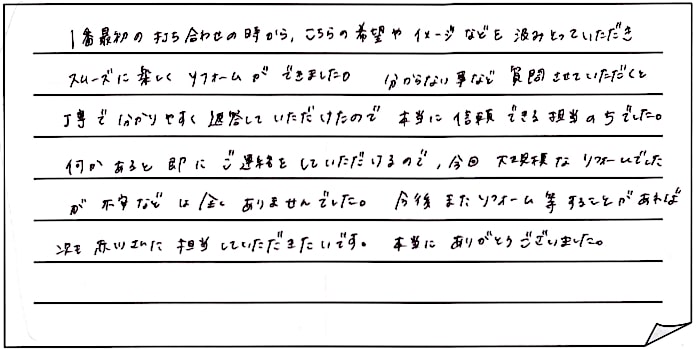 1番最初の打ち合わせの時から、こちらの希望やイメージなどを汲みとっていただき
スムーズに楽しくリフォームができました。 分からない事など質問させていただくと
丁寧で分かりやすく返答していただけたので 本当に信頼できる担当の方でした。
何かあると即にご連絡をしていただけるので、今回大規模なリフォームでした
が不安などは全くありませんでした。 今後またリフォーム等することがあれば
次も赤川さんに担当していただきたいです。 本当にありがとうございました。